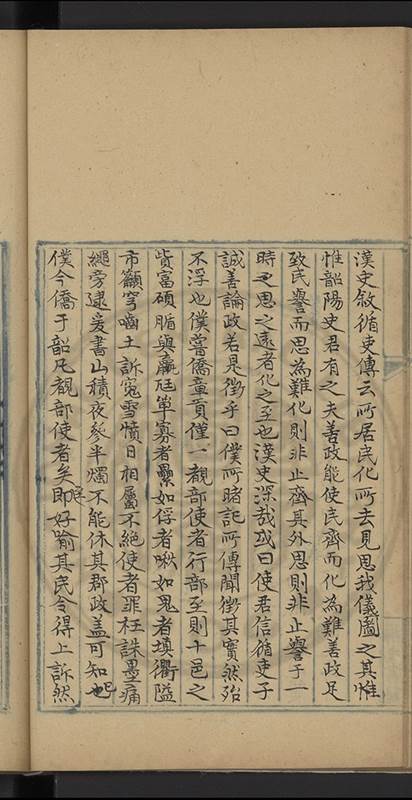 漢史敘循吏傳云所居民化所去見思我儀圖之其惟
惟韶陽史君有之夫善政能使民齊而化為難善政足
致民譽而思為難化則非止齊其外思則非止譽于一
時之思之遠者化之至也漢史深哉或曰使君信循吏子
誠善論政若是徵乎曰僕所睹記所傳聞徵其實然殆
不浮也僕嘗僑童貢僅一覩部使者行部至則十邑之
貲富碩腯與羸尫單寡者纍如俘者啾如鬼者填衢隘
市籲穹嚙土訴冤雪憤日相屬不絕使者罪枉誅墨痛
繩旁逮爰書山積夜參半燭不能休其郡政蓋可知也已
僕今僑于韶凡覩部使者矣即庭好喻其民令得上訴然